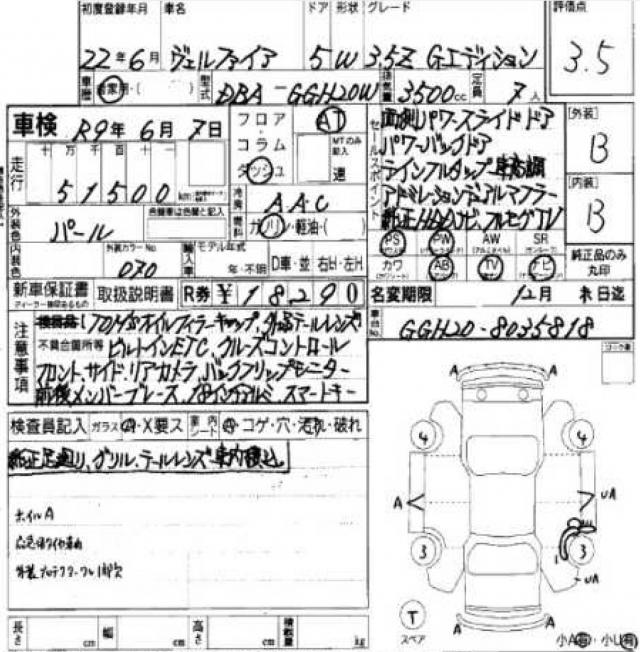 初度登録年月 車名 ドア 形状 グレード 評価点
22年6月 ヴェルファイア 5 W 3.5Z Gエディション 3.5
車歴 自家用・( ) 型式 DBA-GGH20W 排気量 3500cc 定員 7人
車検 R9年6月7日
フロア・コラム・ダッシュ AT MTのみ記入 速
走行 十万千百十一
51500 km
冷房 AAC
燃料 ガソリン・軽油・( )
外装色 パール 色替車は色替と記入
内装色 外装カラーNo. 070
輸入車 モデル年式 年・不明 D車・並 右H・左H
セールスポイント
両側パワースライドドア
パワーバックドア
アドミレーションデュアルマフラー
純正HDDナビ、フルセグTV
PS PW AW SR
カワ AB TV ナビ
[外装] B
[内装] B
純正品のみ丸印
新車保証書 取扱説明書 R券 ¥18290
ディーラー捺印のあるもの
名変期限 12月 末日迄
車台No. GGH20-8035818
注意事項
不具合箇所等
TOM'Sオイルフィラーキャップ、外品テールレンズ
ビルトインETC、クルーズコントロール
フロント、サイド、リアカメラ、バックフリップモニター
前後メンバーブレース、18インチアルミ スマートキー
コーション
検査員記入 ガラス A・X要ス 車内シート A・コゲ・穴・汚れ・破れ
純正足廻り、グリル、テールレンズ車内積込。
ホイルA
A A
4 4
A UA
3 3
1 UA
T
スペア
A A
小A有・小U有
長さ cm 幅 cm 高さ cm 積載量 kg